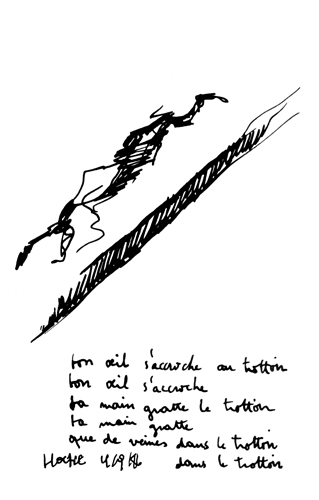 ton œil s'accroche au trottoir
ton œil s'accroche
ta main gratte le trottoir
ta main gratte
que de veines dans le trottoir
dans le trottoir